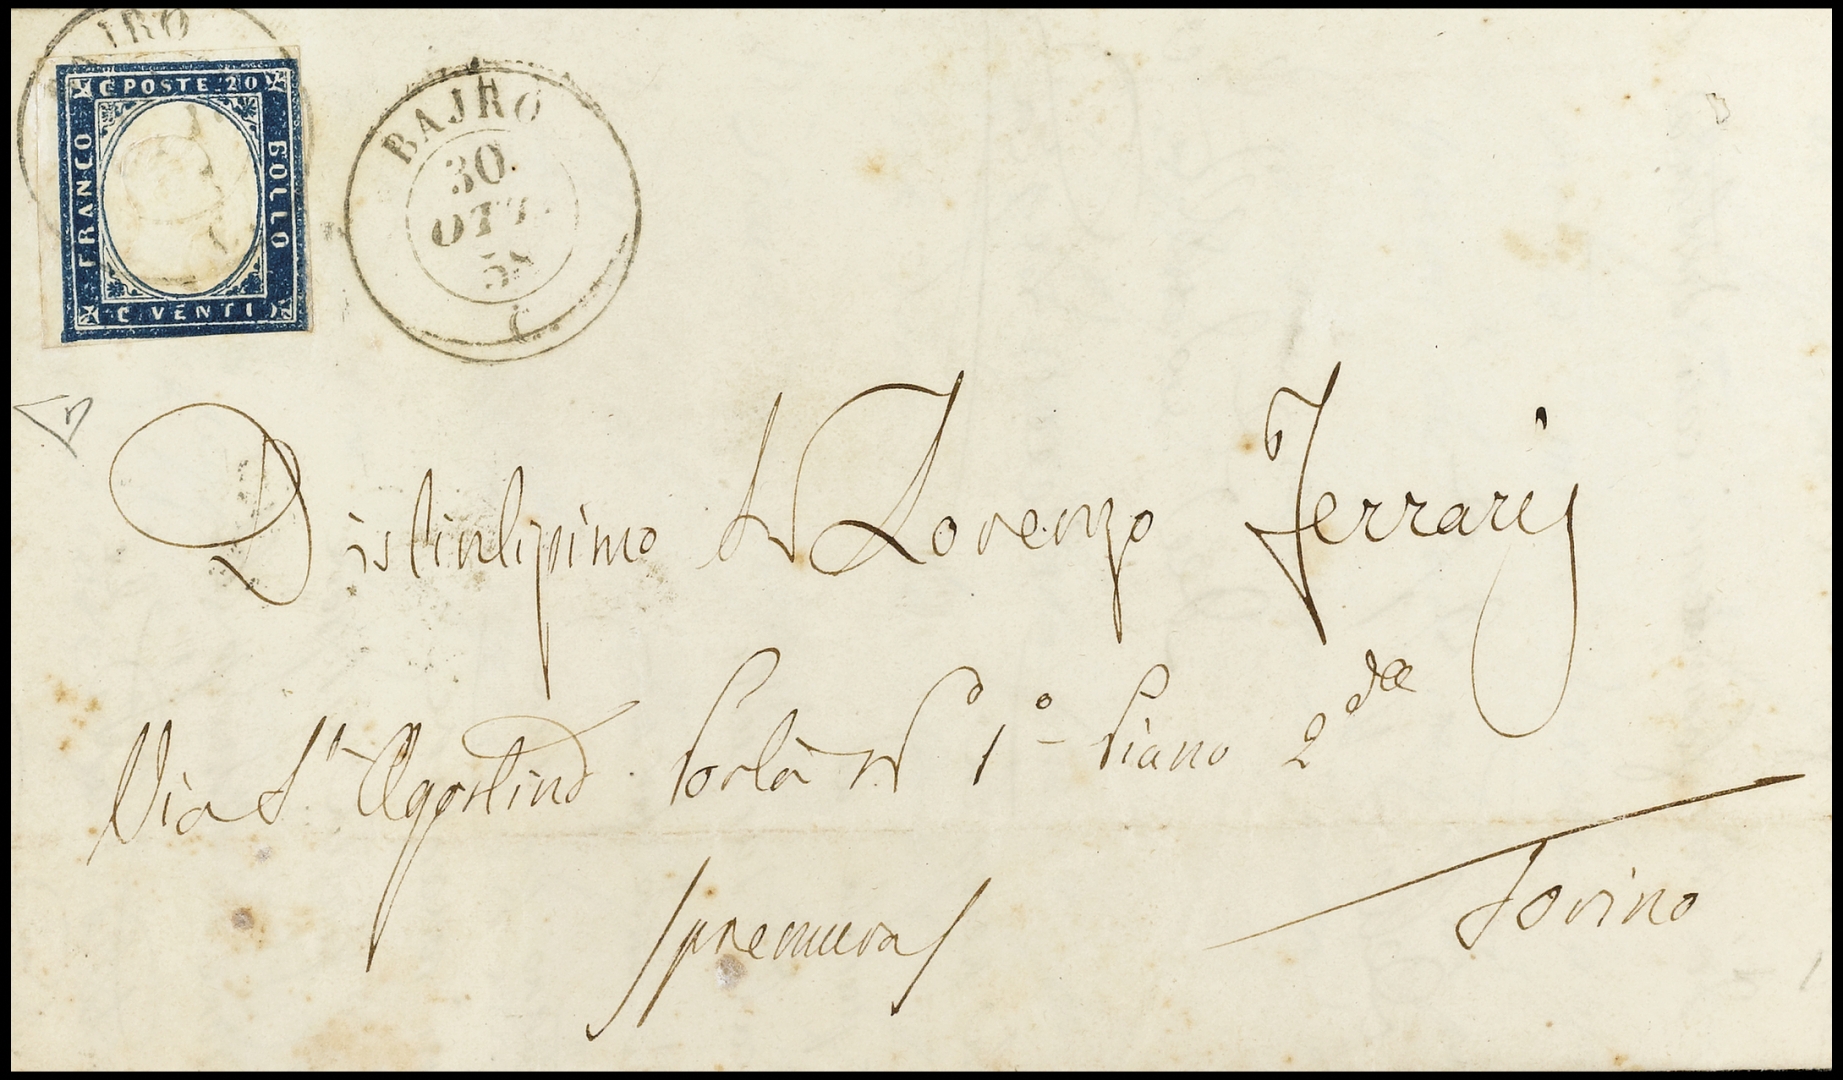 BAJRO
C POSTE 20
FRANCO
BOLLO
C VENTI
BAJRO
30
OTT.
58
C.
Distintissimo Sr Lorenzo Ferraris
Via St Agostino Porta N 1° Piano 2do
Torino
premura